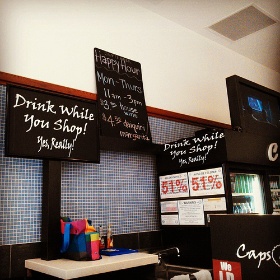 Drink While
You Shop!
Yes, Really!
Happy Hour
Mon-Thurs
11am-3pm
$3 house
wine
$4.50 draughts
margaritas
Drink While
You Shop!
Yes, Really!
51%
51%
Caps